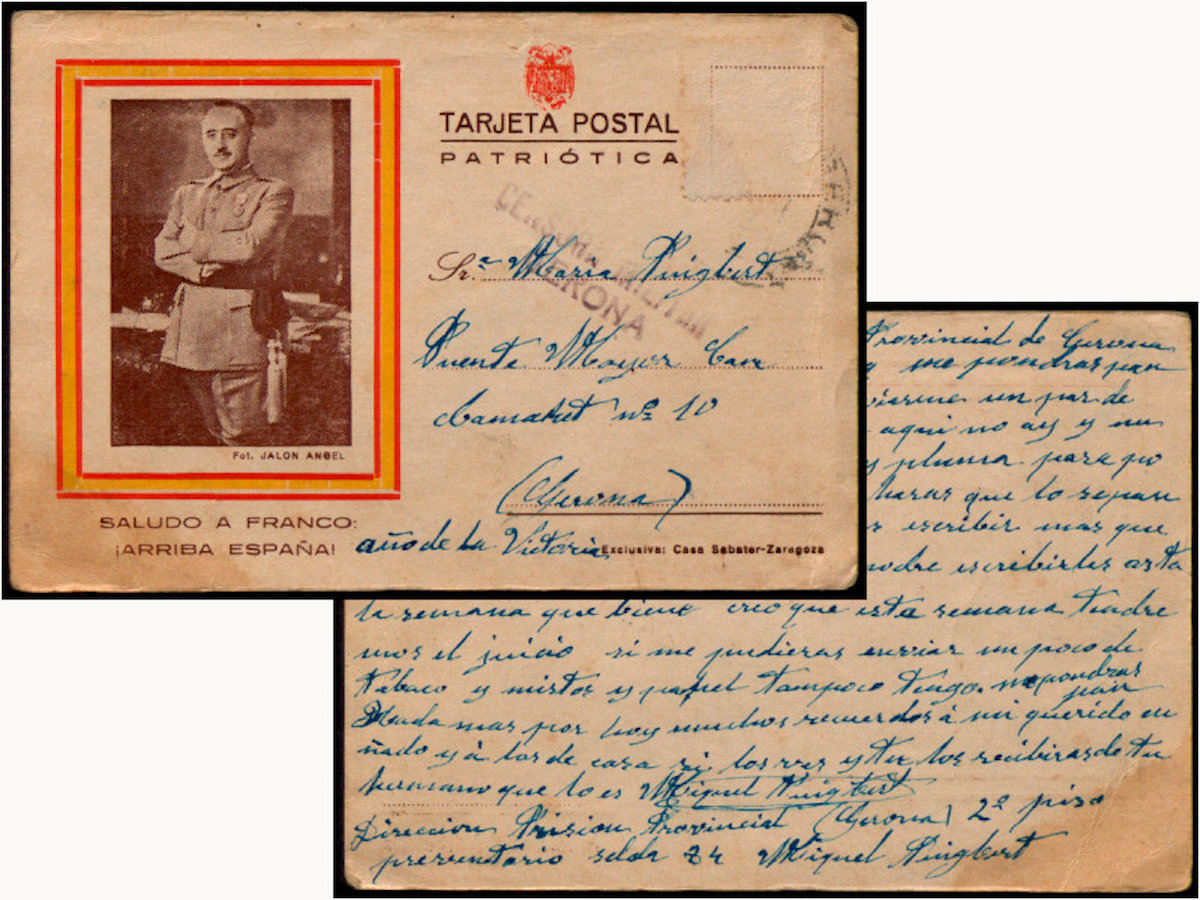 TARJETA POSTAL
PATRIÓTICA
CENSURA MILITAR
GERONA
Sr.ª Maria Puigbert
Puente Mayor Carr
Camaket nº 10
(Gerona)
Fot. JALON ANGEL
SALUDO A FRANCO:
¡ARRIBA ESPAÑA!
año de la Victoria
Exclusiva: Casa Sabater-Zaragoza
Provincial de Gerona
me pondras pan
un par de
aqui no ay y un
y pluma para po
haras que lo sepan
escribir mas que
podre escribirles asta
la semana que biene creo que esta semana tendre
mos el juicio si me pudieras enviar un poco de
tabaco y mistos y papel tampoco tengo me pondras
pan
Nada mas por hoy muchos recuerdos á mi querido cu
ñado y á los de casa si los ves y tu los recibiras de tu
hermano que lo es Miguel Puigbert
Direccion Prision Provincial (Gerona) 2º piso
preventorio selda 24 Miguel Puigbert